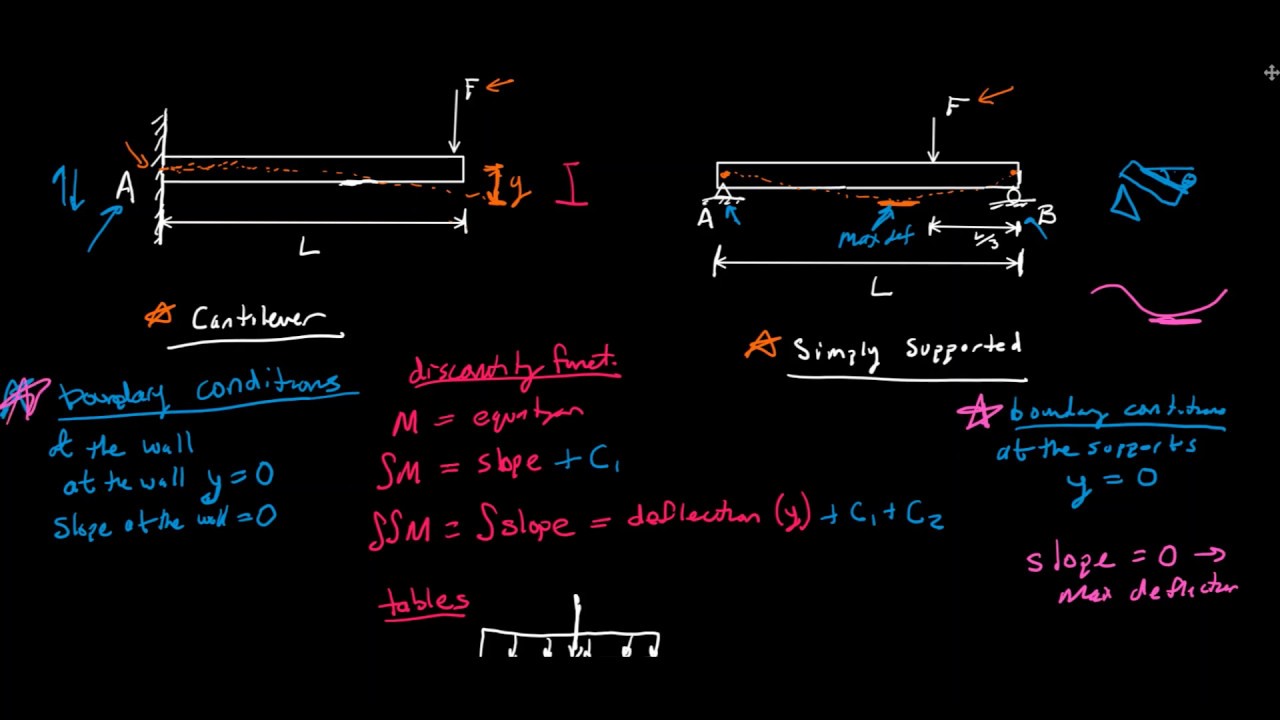 F
A
y
L
Cantilever
boundary conditions
at the wall
at the wall y = 0
Slope at the wall = 0
discontinuity funct.
M = equation
∫M = slope + C₁
∫∫M = ∫slope = deflection (y) + C₁ + C₂
tables
F
A
B
Max def
L/3
L
θ
Simply Supported
boundary conditions
at the supports
y = 0
slope = 0 →
Max deflection